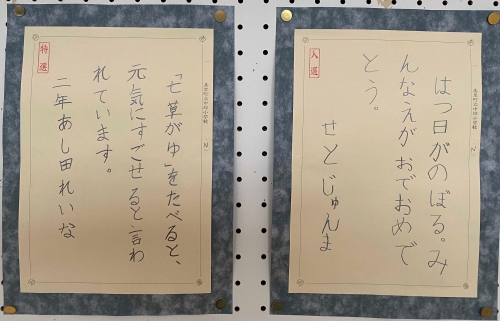 はつ日がのぼる。み
んなえがおでおめで
とう。
せとじゅんま
入選
「七草がゆ」をたべると、
元気にすごせると言わ
れています。
二年あし田れいな
特選